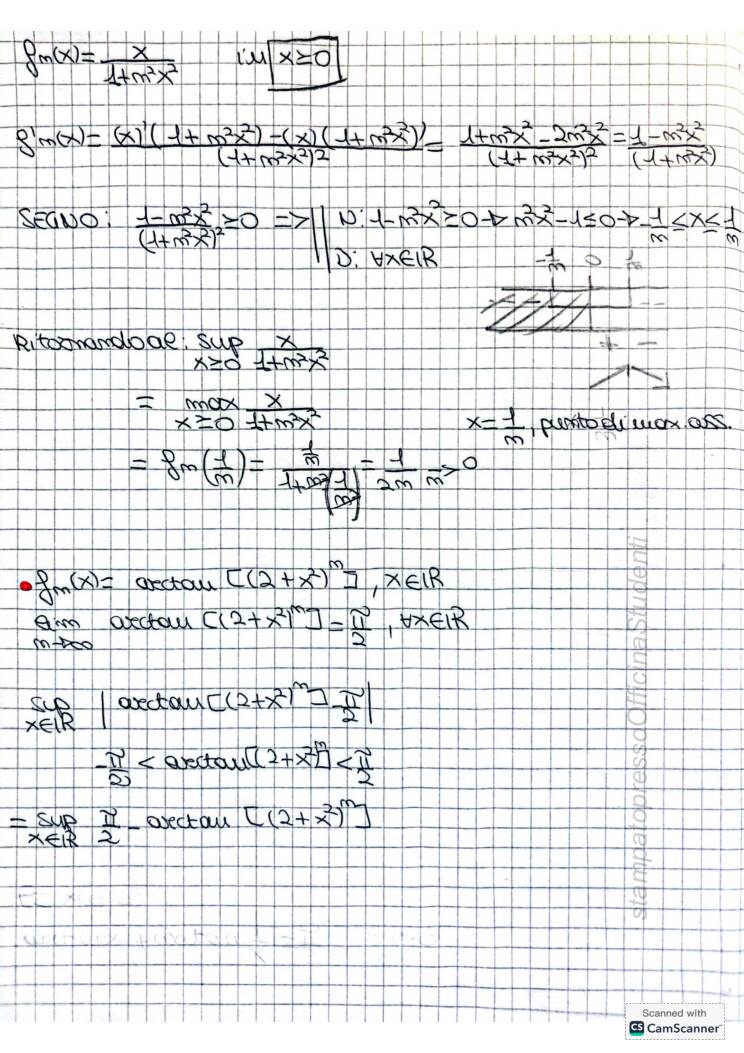 fn(x) = x/(1+n²x²) in x≥0
f'n(x) = ((x)'(1+n²x²) - (x)(1+n²x²)')/(1+n²x²)² = (1+n²x² - 2n²x²)/(1+n²x²)² = (1-n²x²)/(1+n²x²)
SEGNO: (1-n²x²)/(1+n²x²)² ≥0 => || N: 1-n²x²≥0 → n²x²-1≤0 → -1/n ≤ x ≤ 1/n
D: ∀x∈ℝ
-1/n 0 1/n
- + - -
+ -
Ritornando al: sup x≥0 x/(1+n²x²)
= max x≥0 x/(1+n²x²)
x = 1/n, punto di max. ass.
= fn(1/n) = (1/n)/(1+n²(1/n²)) = 1/2n →n 0
• fn(x) = arctan [(2+x²)ⁿ], x∈ℝ
lim n→∞ arctan [(2+x²)ⁿ] = π/2, ∀x∈ℝ
sup x∈ℝ |arctan[(2+x²)ⁿ] - π/2|
-π/2 < arctan[(2+x²)ⁿ] < π/2
= sup x∈ℝ π/2 - arctan [(2+x²)ⁿ]
stampatopressoOfficinaStudenti
Scanned with
CS CamScanner